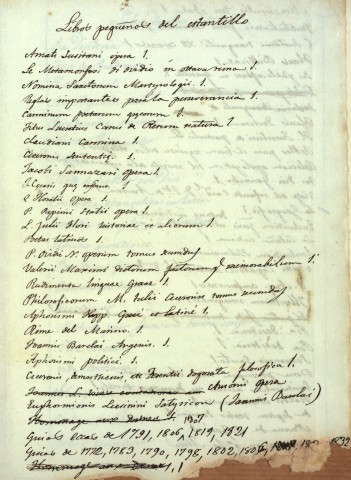 Libros pequeños del estantillo
Amati Lusitani opera 1.
Le Metamorfosi di Ovidio in ottava rima 1.
Nomina Sanctorum Martyrologii. 1.
Reglas importantes para la perseverancia 1.
Carminum poetarum 1.
Titus Lucretius Carus de Rerum natura 1
Claudiani Carmina 1.
Ciceronis Sententiæ. 1.
Jacobi Sannazari opera 1.
Q Horatii opera 1.
P. Papinii Statii opera 1.
L. Julii Flori historiae et aliorum 1.
Poetas latinos 1.
P. Ovidii N. operum tomus secundus
Valerii Maximi dictorum factorumq memorabilium 1.
Rudimenta linguae Graecae 1.
Philosoficorum M. Tulii Ciceronis tomus secundus
Aphorismi Hipp. Graeci et Latini 1.
Rime del Marino. 1.
Joannis Barclai Argenis. 1.
Aphorismi politici. 1.
Ciceronis, demosthenis, et Terentii dogmata filosofica 1.
Ausonii opera
Euphormionis Lusinini Satyricon (Joannis Barclai)
Hommage aux dames 1. 1807
Guias ecas. de 1791, 1806, 1819, 1821
Guias de 1772, 1783, 1790, 1798, 1802, 1806, 1832
Hommage aux dames, 1